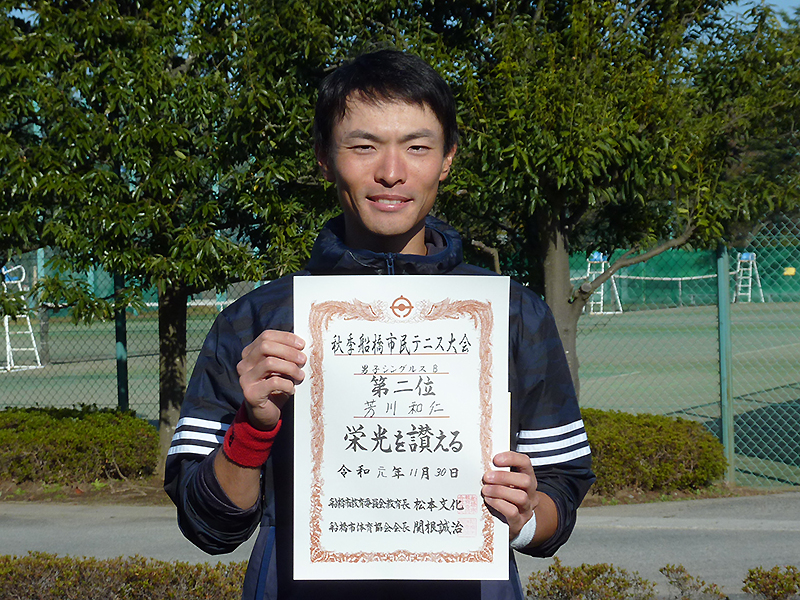 秋季船橋市民テニス大会
男子シングルス B
第二位
芳川 和仁
栄光を讃える
令和元年11月30日
船橋市教育委員会教育長 松本文化
船橋市体育協会会長 関根誠治